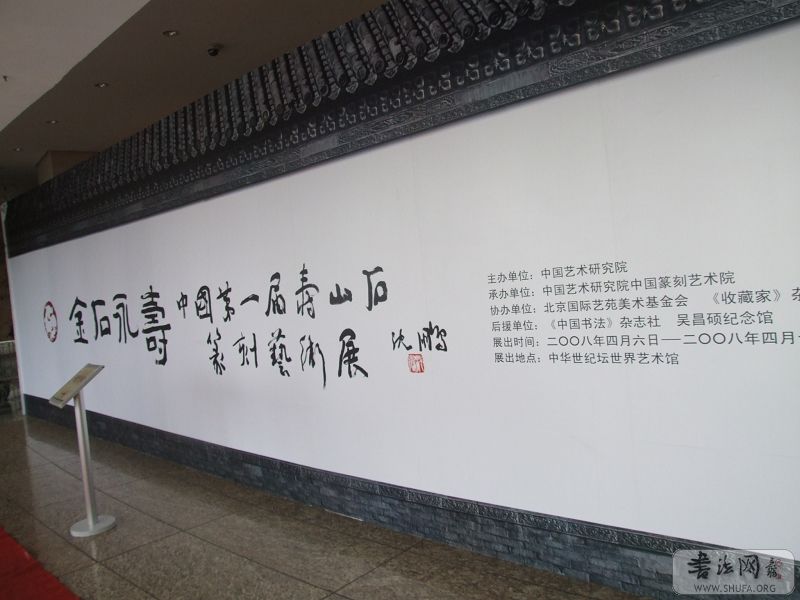 金石永壽中國第一届寿山石
篆刻藝術展
沈鵬
主办单位：中国艺术研究院
承办单位：中国艺术研究院中国篆刻艺术院
协办单位：北京国际艺苑美术基金会 《收藏家》杂
后援单位：《中国书法》杂志社 吴昌硕纪念馆
展出时间：二〇〇八年四月六日—二〇〇八年四月
展出地点：中华世纪坛世界艺术馆
書法网
WWW.SHUFA.ORG